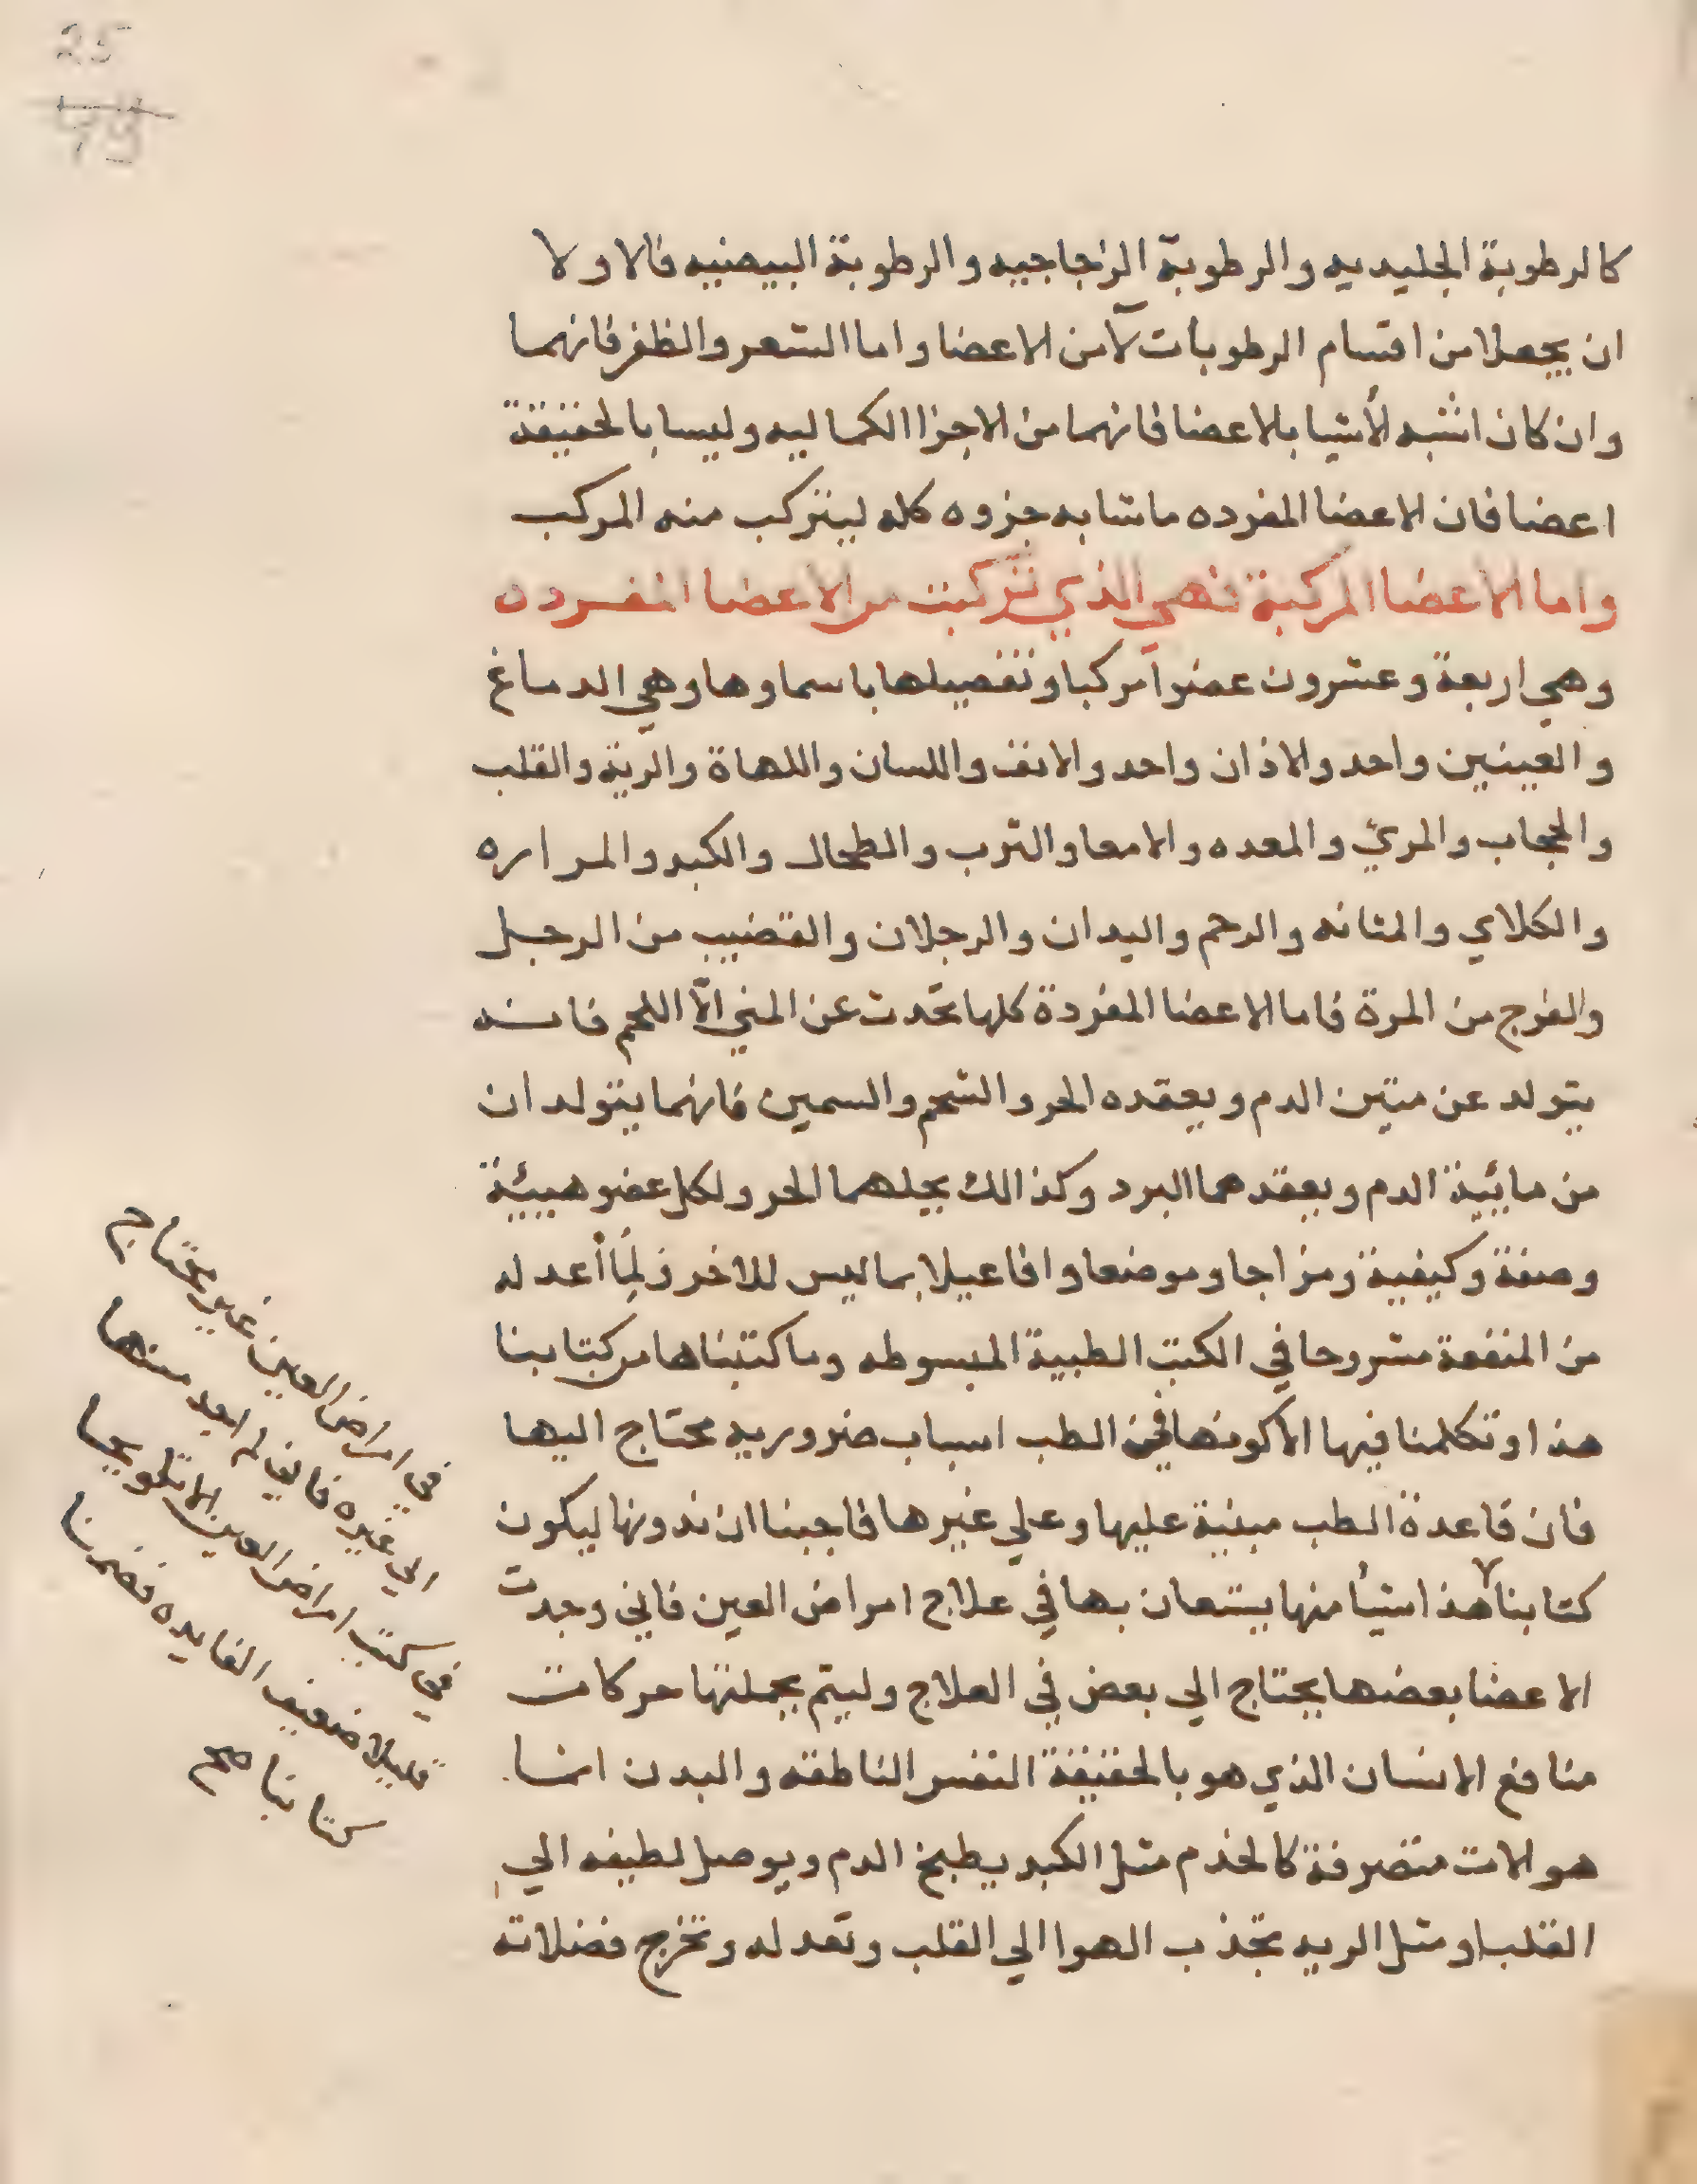 25
79
كالرطوبة الجليديه والرطوبة الزجاجيه والرطوبة البيضيه فالاولا
ان يجعلا من اقسام الرطوبات لآ من الاعضا واما الشعر والظفر فانهما
وان كان اشبه لأشيا بلاعضا فانهما من الاجزا الكماليه وليسا بالحقيقة
اعضا فان الاعضا المفرده ما شابه جزوه كله ليتركب منه المركب
واما الاعضا المركبة فهي الذي تتركبت من الاعضا المفرده
وهي اربعة وعشرون عضواً مركبا وتفصيلها باسماوها وهي الدماغ
والعينين واحد والاذان واحد والانف واللسان واللهاة والرية والقلب
والحجاب والمريّ والمعده والامعا والترب والطحال والكبد والمراره
والكلاي والمثانه والرحم واليدان والرجلان والقضيب من الرجل
والفرج من المرة فاما الاعضا المفردة كلها تحدث عن المني الّا اللحم فانه
يتولد عن متين الدم ويعقده الحر والشحم والسمين فانهما يتولدان
من مائيّة الدم ويعقدهما البرد وكذالك يحلهما الحر ولكل عضو هييئة
وصفة وكيفية ومزاجا وموضعا وافاعيلا بما ليس للاخر ولِمَا أعد له
من المنفعة مشروحا في الكتب الطبية المبسوطه وما كتبناها من كتابنا
هذا وتكلمنا فيها الا كونها في الطب اسباب ضروريه محتاج اليها
فان قاعدة الطب مبنية عليها وعلي غيرها فاجبنا ان ندونها ليكون
كتابنا هذا شيأ منها يستعان بها في علاج امراض العين فاني وجدت
الاعضا بعضها يحتاج الي بعض في العلاج وليتم بجملتها حركات
منافع الانسان الذي هو بالحقيقة النفس الناطقه والبدن انما
هو الات متصرفة كالخدم مثل الكبد يطبخ الدم ويوصل لطيفه الي
القلب او مثل الريه تجذب الهوا الي القلب وتعدله وتخرج فضلاته
في امراض العين غير محتاج
الي غيره فاني لم اجد منها
في كتب امراض العين الا تلويحا
قليلا ضعيف الفايده فضمرنا
كتابنا صح